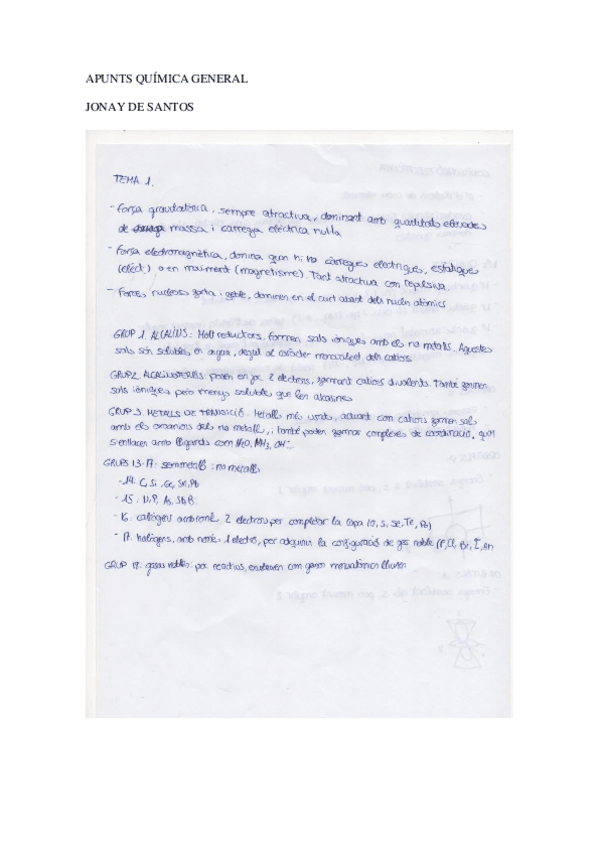 APUNTS QUÍMICA GENERAL
JONAY DE SANTOS
TEMA 1.
- Força gravitatòria, sempre atractiva, dominant amb quantitats elevades
de massa i càrrega elèctrica nul·la
- Força electromagnètica, domina quan hi ha càrregues elèctriques, estàtiques
(elèct.) o en moviment (magnetisme). Tant atractiva com repulsiva.
- Forces nuclears forta i dèbil, dominen en el curt abast dels nuclis atòmics
GRUP 1. ALCALINS: Molt reductors. Formen sals iòniques amb els no metalls. Aquestes
sals són solubles en aigua, degut al caràcter monovalent dels cations.
GRUP 2. ALCALINOTERRIS: posen en joc 2 electrons, formant cations divalents. També formen
sals iòniques però menys solubles que les alcalines
GRUP 3. METALLS DE TRANSICIÓ. Metalls més usats, actuant com cations formen sals
amb els dels no metalls, i també poden formar complexes de coordinació, quan
s'enllacen amb lligands com H2O, NH3, OH-...
GRUPS 13-17: semimetalls i no metalls
- 14. C, Si, Ge, Sn, Pb
- 15. N, P, As, Sb, Bi
- 16. calcògens amb només 2 electrons per completar la capa (O, S, Se, Te, Po)
- 17. halògens, amb només 1 electró, per adquirir la configuració de gas noble (F, Cl, Br, I, At)
GRUP 18. gasos nobles: poc reactius, existeixen com gasos monoatòmics lliures